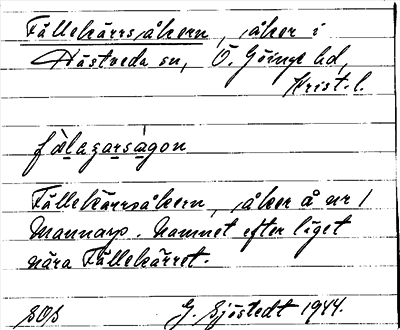 Fällekärrsåkern, åker i
Hästveda sn, Ö. Göinge hd,
Krist. l.
fälagarsågon
Fällekärrsåkern, åker å nr 1
Mannarp. Namnet efter läget
nära Fällekärret.
SOS G. Sjöstedt 1944.